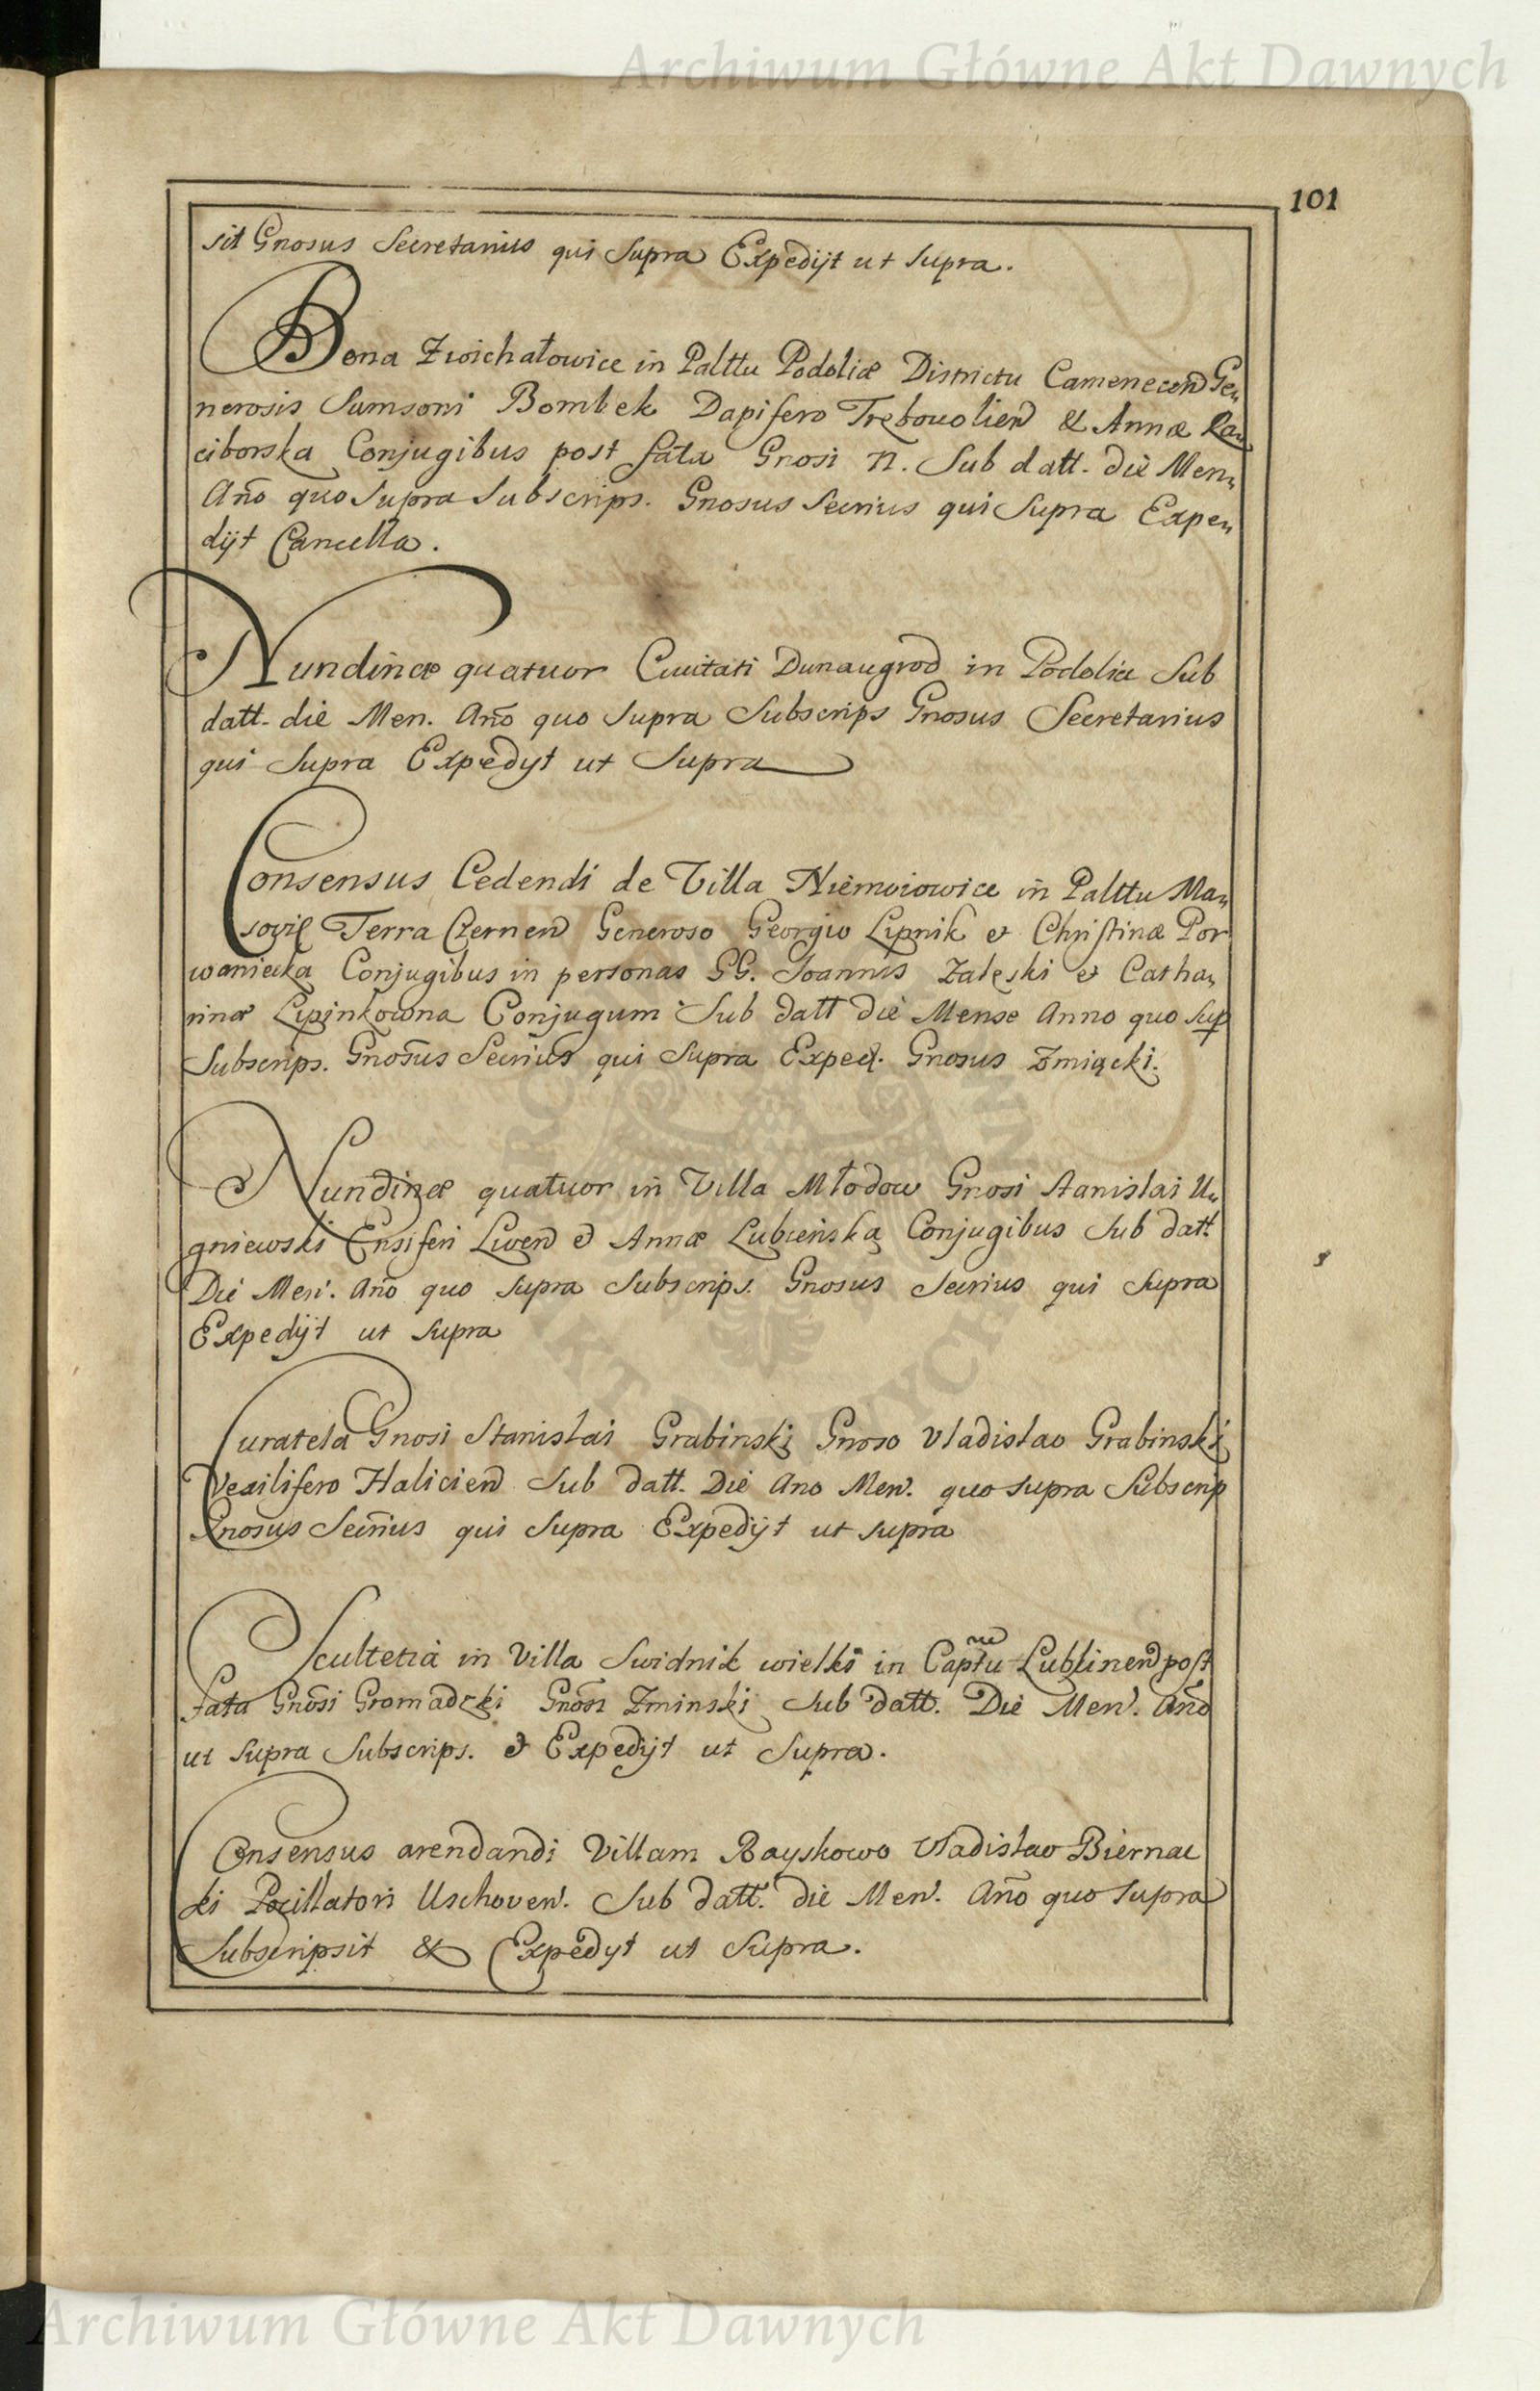 Archiwum Główne Akt Dawnych
101
sit Gnosus Secretarius qui Supra Expedijt ut supra.
Bona Zwichałowice in Palttu Podoliæ Districtu Camenecen Ge„
nerosis Samsoni Bombek Dapifero Trębouolien & Annæ Ra„
ciborska Conjugibus post fata Gnosi N. Sub datt. die Men„
Año quo Supra Subscrips. Gnosus Secrius qui Supra Expe„
dijt Cancella.
Nundinæ quatuor Ciuitati Dunaugrod in Podolia Sub
datt. die Men. Año quo Supra Subscrips Gnosus Secretarius
qui Supra Expedyt ut Supra
Consensus Cedendi de Villa Niemoiowice in Palttu Ma„
soviæ Terra Czernen Generoso Georgio Lipnik et Christinæ Por
waniecka Conjugibus in personas GG. Joannis Zaleski et Catha„
rinæ Lipinkowna Conjugum Sub datt die Mense Anno quo Sup
Subscrips. Gnosus Secrius qui Supra Exped. Gnosus Zmiącki.
Nundinæ quatuor in Villa Młodow Gnosi Stanislai U„
gniewski Ensiferi Liven et Annæ Lubieńska Conjugibus Sub datt
Die Men. Año quo Supra Subscrips. Gnosus Secrius qui Supra
Expedijt ut Supra
Curatela Gnosi Stanislai Grabinski Gnoso Vladislao Grabinski
Vexilifero Halicien Sub datt. Die Ano Men. quo supra Subscrip
Gnosus Secrius qui Supra Expedijt ut supra
Scultetia in Villa Swidnik wielki in Captu Lublinen post
fata Gnosi Gromadzki Gnosi Zminski Sub datt. Die Men. Año
ut Supra Subscrips. et Expedijt ut Supra.
Consensus arendandi Villam Rayskowo Vladislao Biernac
ki Pocillatori Uschoven. Sub datt. die Men. Año quo Supra
Subscripsit & Expedyt ut Supra.
Archiwum Główne Akt Dawnych